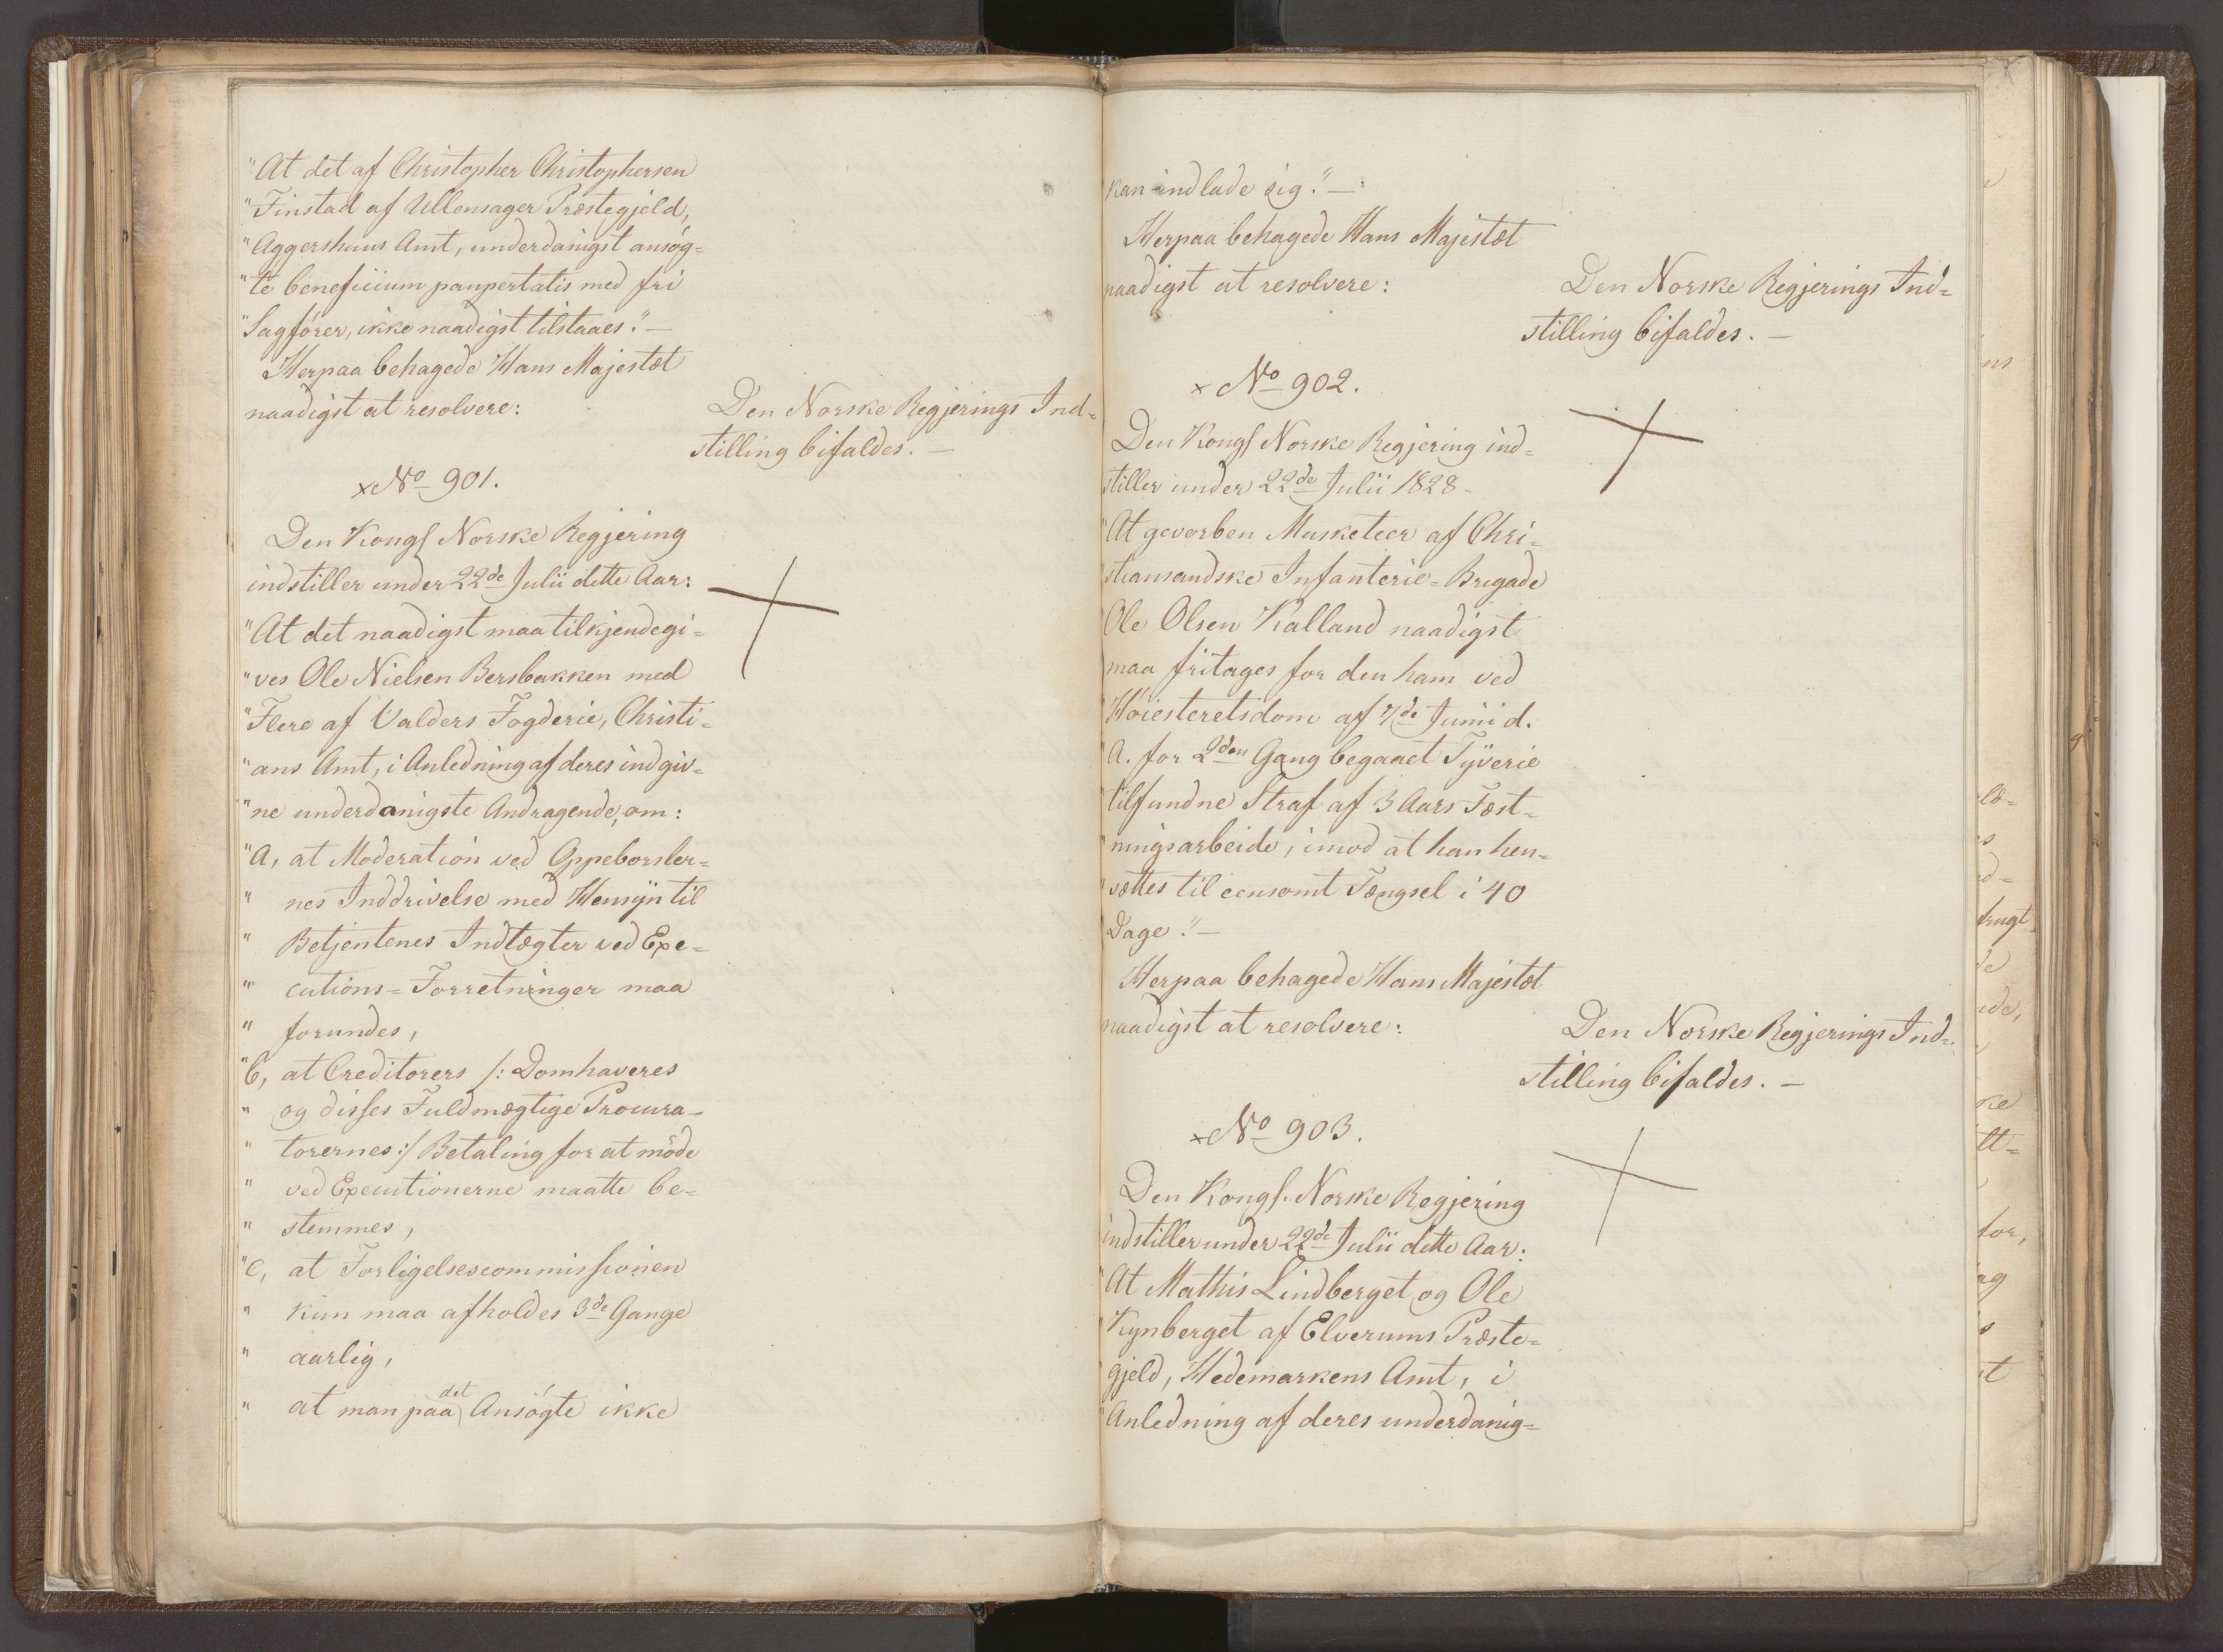 "At det af Christopher Christophersen
"Finstad af Ullensager Præstegjeld,
"Aggershuus Amt, underdanigst ansøg=
"te beneficium paupertatis med fri
"Sagfører, ikke naadigst tilstaaes."—
Herpaa behagede Hans Majestæt
naadigst at resolvere:
Den Norske Regjerings Ind=
stilling bifaldes.—
x No 901.
Den Kongl Norske Regjering
indstiller under 22de Julii dette Aar:
"At det naadigst maa tilkjendegi=
"ves Ole Nielsen Bersbakken med
"Flere af Valders Fogderie, Christi=
"ans Amt, i Anledning af deres indgiv=
"ne underdanigste Andragende, om:
"a, at Moderation ved Oppeborsler=
" nes Inddrivelse med Hensyn til
" Betjentenes Indtægter ved Exe=
" cutions=Forretninger maa
" forundes,
"b, at Creditorers /: Domhaveres
" og disses Fuldmægtige Procura=
" torernes :/ Betaling for at møde
" ved Executionerne maatte be=
" stemmes,
"c, at Forligelsescommissionen
" kun maa afholdes 3de Gange
" aarlig,
" at man paa det Ansøgte ikke
kan indlade sig."—
Herpaa behagede Hans Majestæt
naadigst at resolvere:
Den Norske Regjerings Ind=
stilling bifaldes.—
x No 902.
Den Kongl Norske Regjering ind=
stiller under 22de Julii 1828-
"At gevorben Musketeer af Chri=
stiansandske Infanterie=Brigade
Ole Olsen Kalland naadigst
maa fritages for den ham ved
Høiesteretsdom af 7de Junii d.
A. for 2den Gang begaaet Tyverie
tilfundne Straf af 3 Aars Fæst=
"ningsarbeide, imod at han hen=
"sættes til eensomt Fængsel i 40
Dage."—
Herpaa behagede Hans Majestæt
naadigst at resolvere:
Den Norske Regjerings Ind=
stilling bifaldes.—
x No 903.
Den Kongl. Norske Regjering
indstiller under 22de Julii dette Aar:
"At Mathis Lindberget og Ole
"Kynberget af Elverums Præste=
gjeld, Hedemarkens Amt, i
"Anledning af deres underdanig=